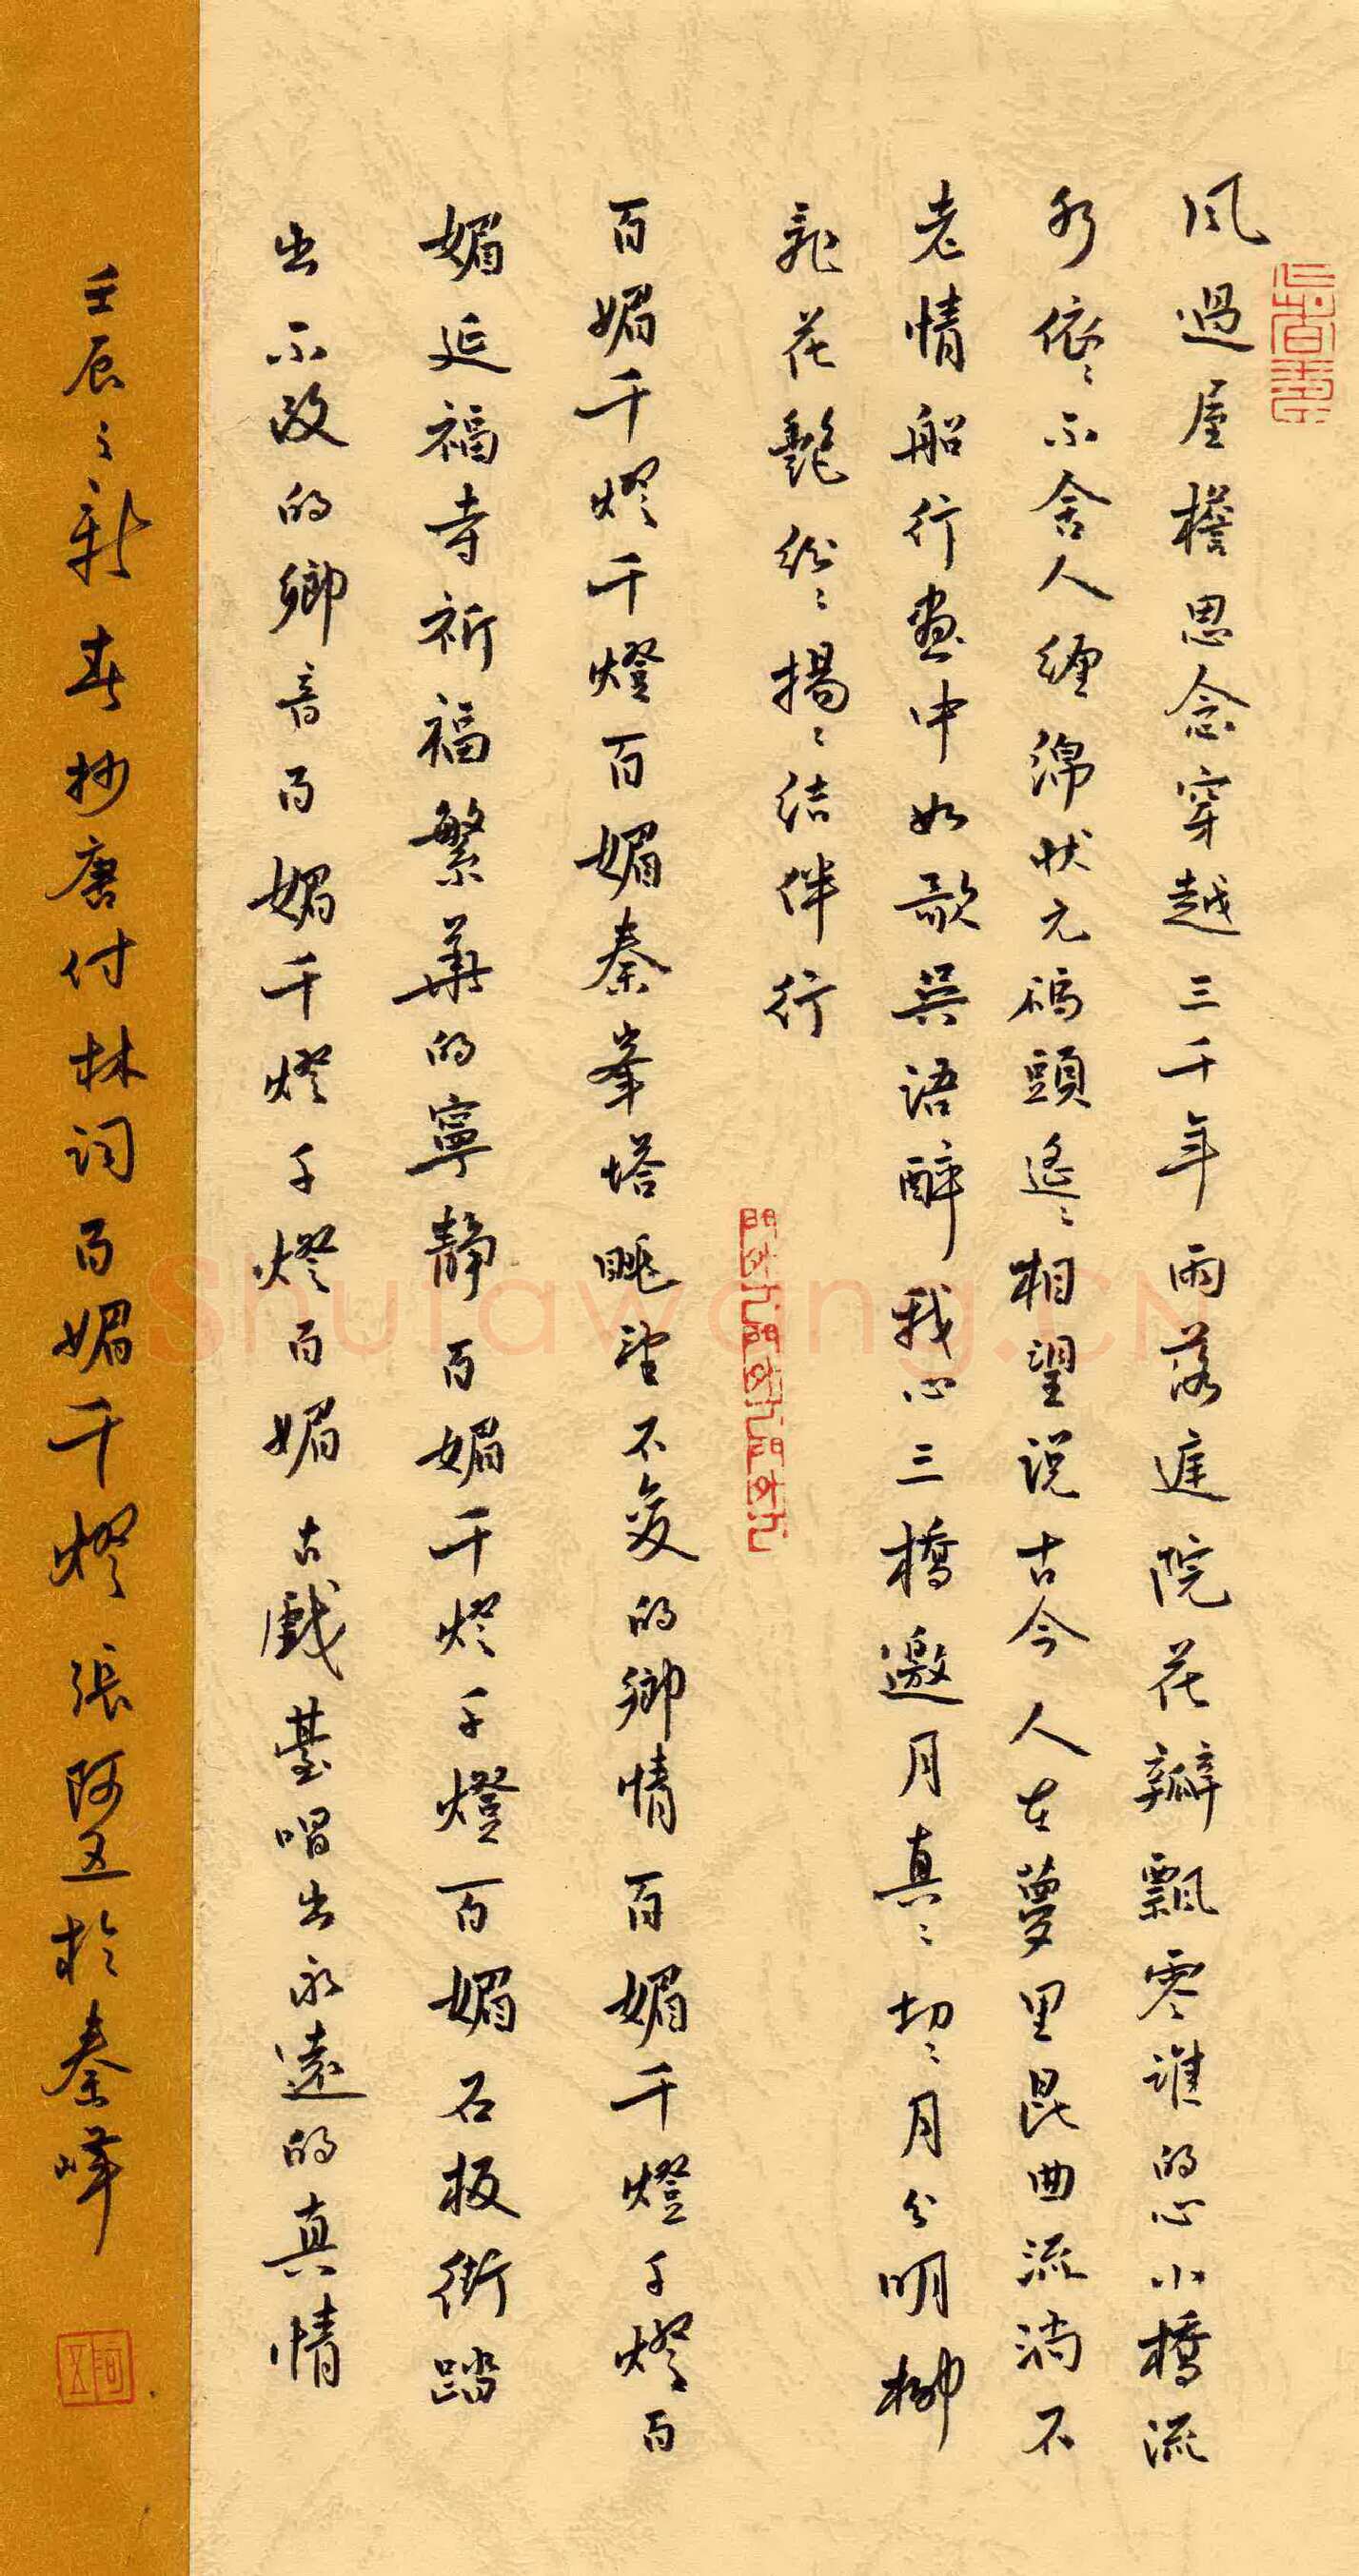 風過屋檐思念穿越三千年雨落庭院花瓣飄零誰的心小橋流
水依〻不舍人缠绵状元碼頭遙〻相望说古今人在夢里昆曲流淌不
老情船行畫中如歌吴语醉我心三橋邀月真〻切〻月分明柳
飛花艷纷〻揚〻结伴行
百媚千燈千燈百百媚秦峯塔眺望不变的鄉情百媚千燈千燈百
媚延福寺祈福繁華的寧静百媚千燈千燈百百媚石板街踏
出不改的鄉音百媚千燈千燈百媚古戲臺唱出永遠的真情
壬辰之新春抄唐付林词百媚千燈張阿五於秦峰
Shufawang.CN